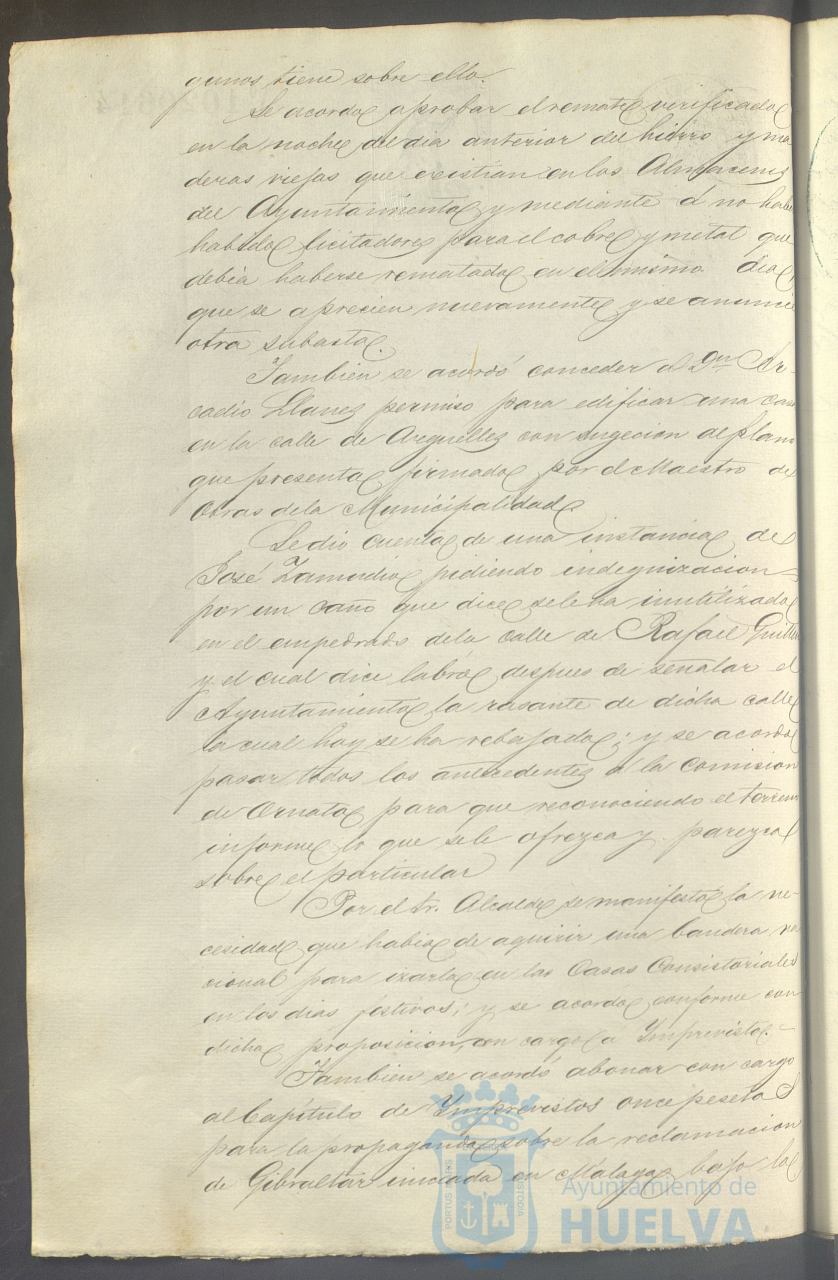 gunos tiene sobre ello.
Se acordó aprobar el remate verificado
en la noche del dia anterior del hierro y ma
deras viejas que existian en los Almacenes
del Ayuntamiento y mediante á no haber
habido licitadores para el cobre y metal que
debia haberse rematado en el mismo dia,
que se aprecien nuevamente y se anuncie
otra subasta.
Tambien se acordó conceder á Dn. Ar-
cadio Llanes permiso para edificar una casa
en la calle de Arguelles con sugecion al plano
que presenta firmado por el Maestro de
Obras de la Municipalidad
Se dio cuenta de una instancia de
José Zamudio pidiendo indegnizacion
por un caño que dice se le ha inutilizado
en el empedrado de la calle de Rafael Guillen
y el cual dice labró despues de señalar el
Ayuntamiento la rasante de dicha calle
la cual hoy se ha rebajado; y se acordó
pasar todos los antecedentes á la Comision
de Ornato para que reconociendo el terreno
informe lo que se le ofrezca y parezca
sobre el particular
Por el Sr. Alcalde se manifestó la ne-
cesidad que habia de aquirir una bandera na
cional para izarla en las Casas Consistoriales
en los dias festivos; y se acordó conforme con
dicha proposicion, con cargo a Imprevistos.
Tambien se acordó abonar con cargo
al Capitulo de Imprevistos once pesetas
para la propaganda sobre la reclamacion
de Gibraltar iniciada en Malaga bajo la
PORTUS MARIS
CUSTODIA
Ayuntamiento de
HUELVA